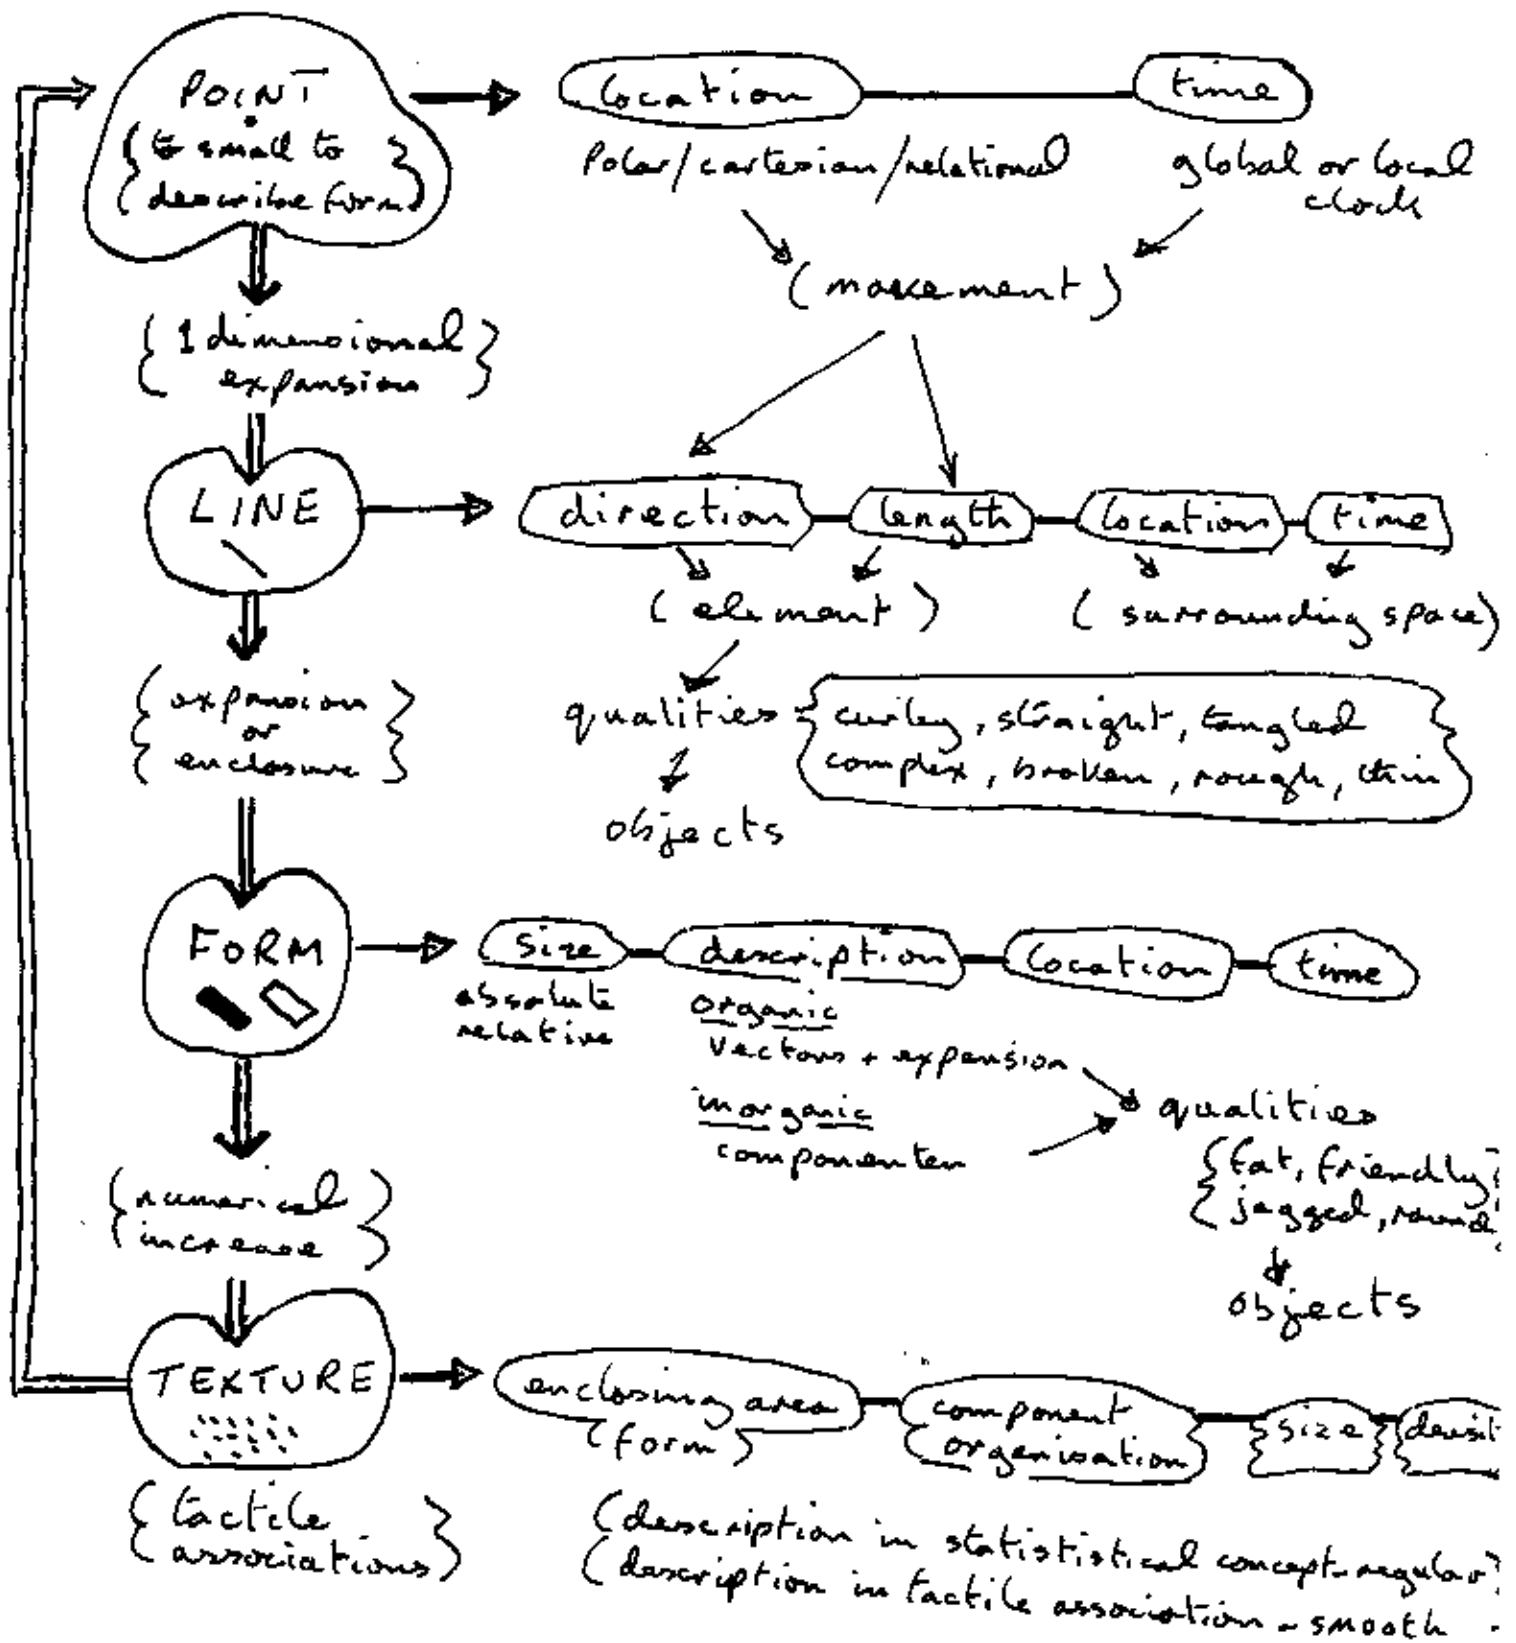 POINT
{ to small to }
{ describe form }
location
time
Polar/cartesian/relational
global or local
clock
(movement)
{ 1 dimensional }
{ expansion }
LINE
direction
length
location
time
(element)
(surrounding space)
{ expansion
or
enclosure }
qualities
{ curley, straight, tangled
complex, broken, rough, thin }
objects
FORM
size
description
location
time
absolute
relative
organic
vectors + expansion
inorganic
componenten
qualities
{ fat, friendly
{ jagged, round
objects
{ numerical }
{ increase }
TEXTURE
enclosing area
(form)
component
organisation
size
densit
{ tactile
associations }
(description in statististical concept-regular
(description in tactile association - smooth